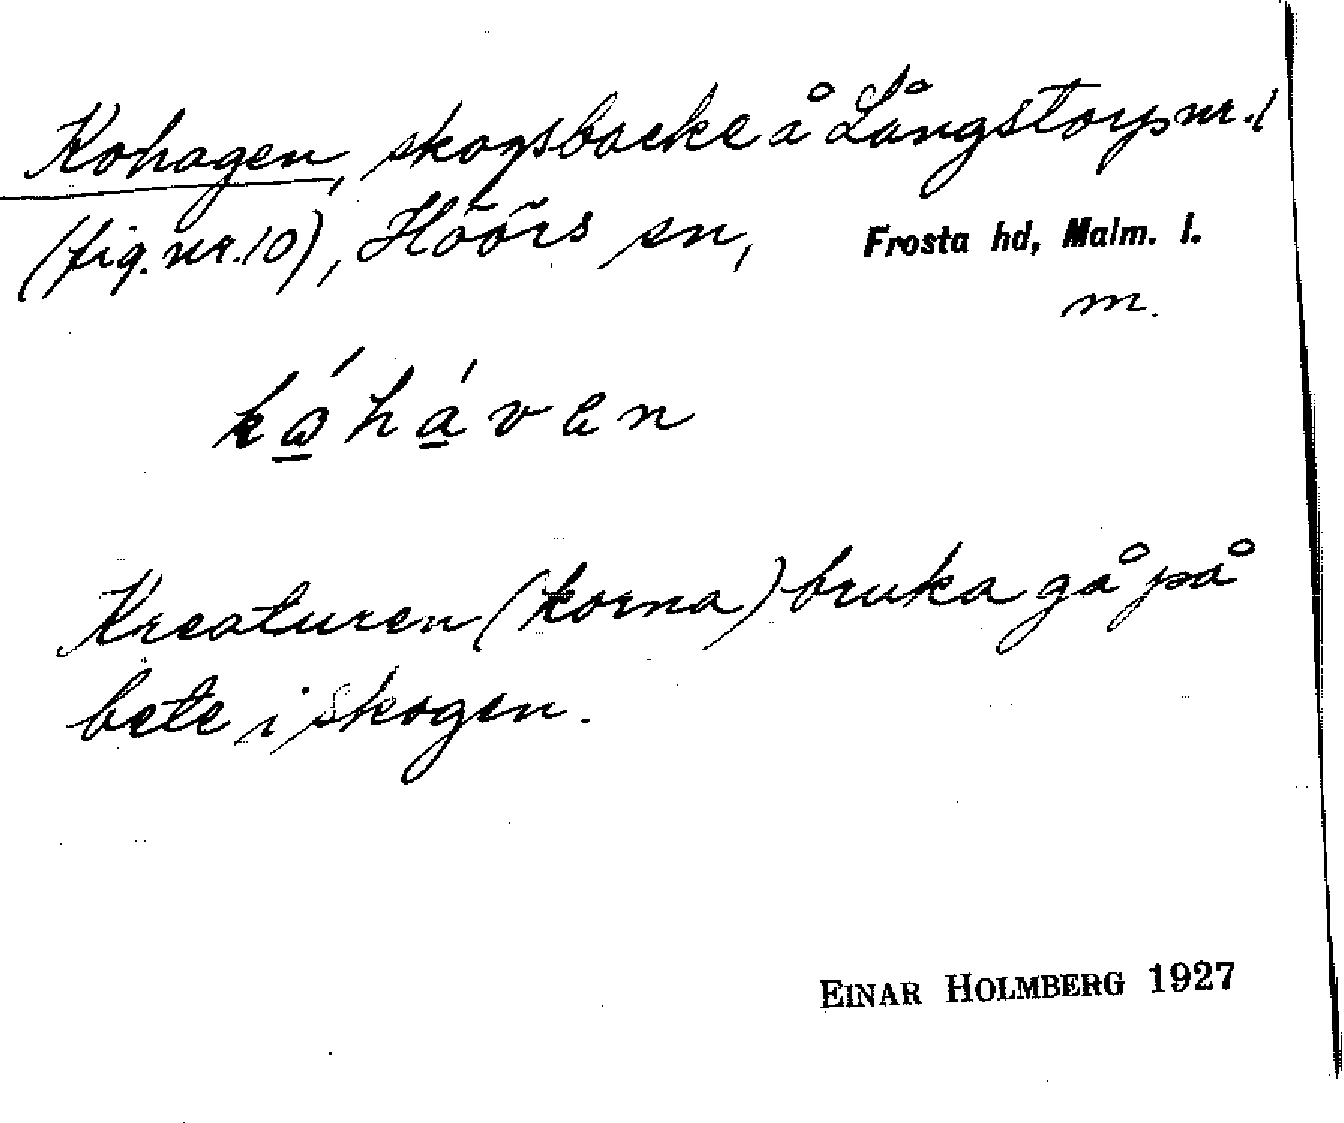 Kohagen, skogsbacke å Långstorp nr. 1
(fig. nr. 10), Höörs sn, Frosta hd, Malm. l.
m.
kåháven
Kreaturen (korna) bruka gå på
bete i skogen.
EINAR HOLMBERG 1927